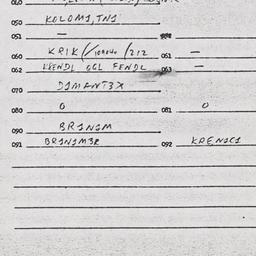 040
050 KOLOM1,TN1
051 —
060 KRIK/104040/212 061 —
062 KEENDL OGL FENDL 063 —
070 D1MANT3X
080 0 081 0
090 BR1N1M
091 BR1N1M3R 092 KRENAC1